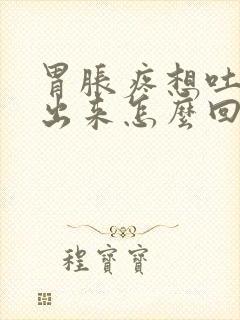 胃脹疼想吐
出来怎麼回
程寶寶